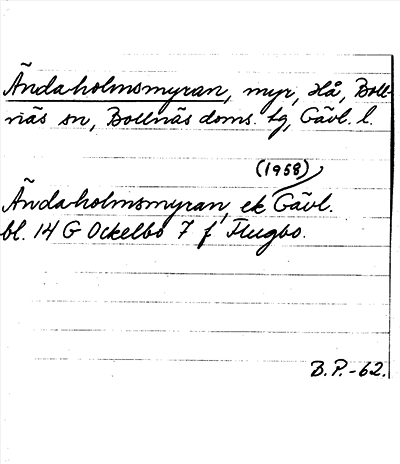 Ändaholmsmyran, myr, Hå, Boll-
näs sn, Bollnäs doms. tg, Gävl. l.
(1958)
Ändaholmsmyran, ek Gävl.
bl. 14 G Ockelbo 7 f Flugbo.
B.P.-62.